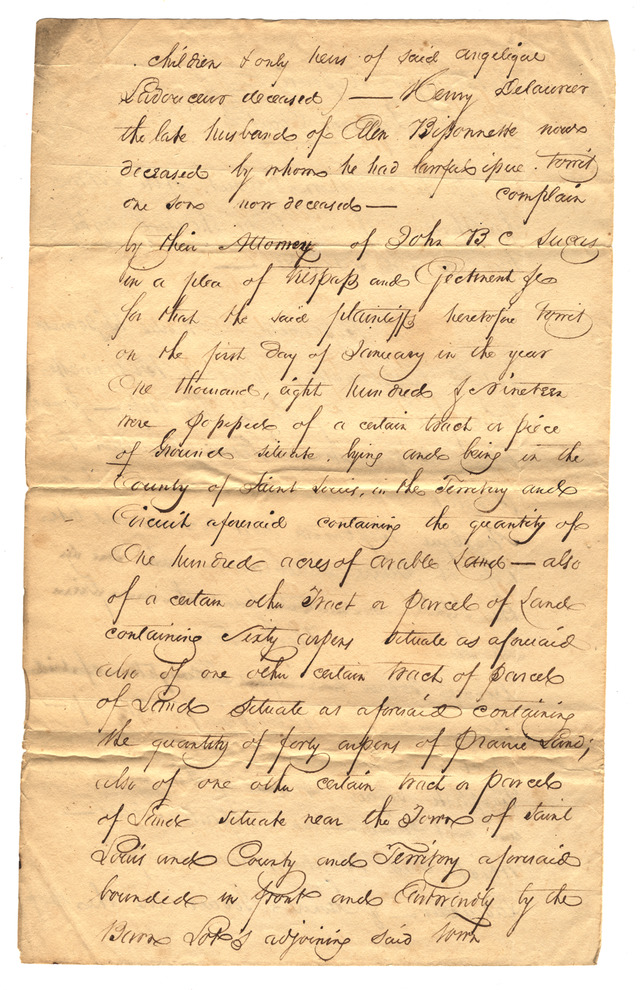 children & only heirs of said angelique
Ladouceur deceased) — Henry Delaurier
the late husband of Ellen Bissonnette now
deceased by whom he had lawful issue. towit
one son now deceased — complain
by their Attorney of John B C Lucas
in a plea of trespass and Ejectment &c
for that the said plaintiffs heretofore towit
on the first day of January in the year
One thousand, eight hundred & Nineteen
were possessed of a certain tract or piece
of Ground situate. lying and being in the
County of Saint Louis, in the Territory and
Circuit aforesaid containing the quantity of
One hundred acres of arable Land — also
of a certain other Tract or parcel of Land
containing Sixty arpens situate as aforesaid
also of one other certain tract of parcel
of Land situate as aforesaid containing
the quantity of forty arpens of prairie Land;
also of one other certain tract or parcel
of Land situate near the Town of Saint
Louis and County and Territory aforesaid
bounded in front and Eastwardly by the
Barn Lots adjoining said town